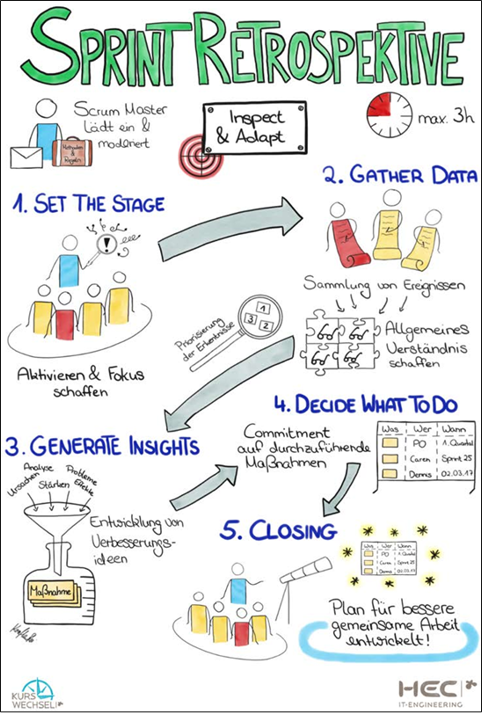 SPRINT RETROSPEKTIVE
Scrum Master
lädt ein &
moderiert
Methoden
&
Regeln
Inspect
& Adapt
max. 3h
1. SET THE STAGE
!
Aktivieren & Fokus
schaffen
2. GATHER DATA
Sammlung von Ereignissen
Allgemeines
Verständnis
schaffen
Priorisierung
der Erkenntnisse
1
3 2
3. GENERATE INSIGHTS
Analyse
Ursachen
Stärken
Probleme
Effekte
Maßnahme
Entwicklung von
Verbesserungs-
ideen
4. DECIDE WHAT TO DO
Commitment
auf durchzuführende
Maßnahmen
Was Wer Wann
PO 1. Quartal
Caren Sprint 25
Dennis 02.03.17
5. CLOSING
Was Wer Wann
PO 1. Quartal
Caren Sprint 25
Dennis 02.03.17
Plan für bessere
gemeinsame Arbeit
entwickelt!
KURS
WECHSEL
HEC
IT-ENGINEERING